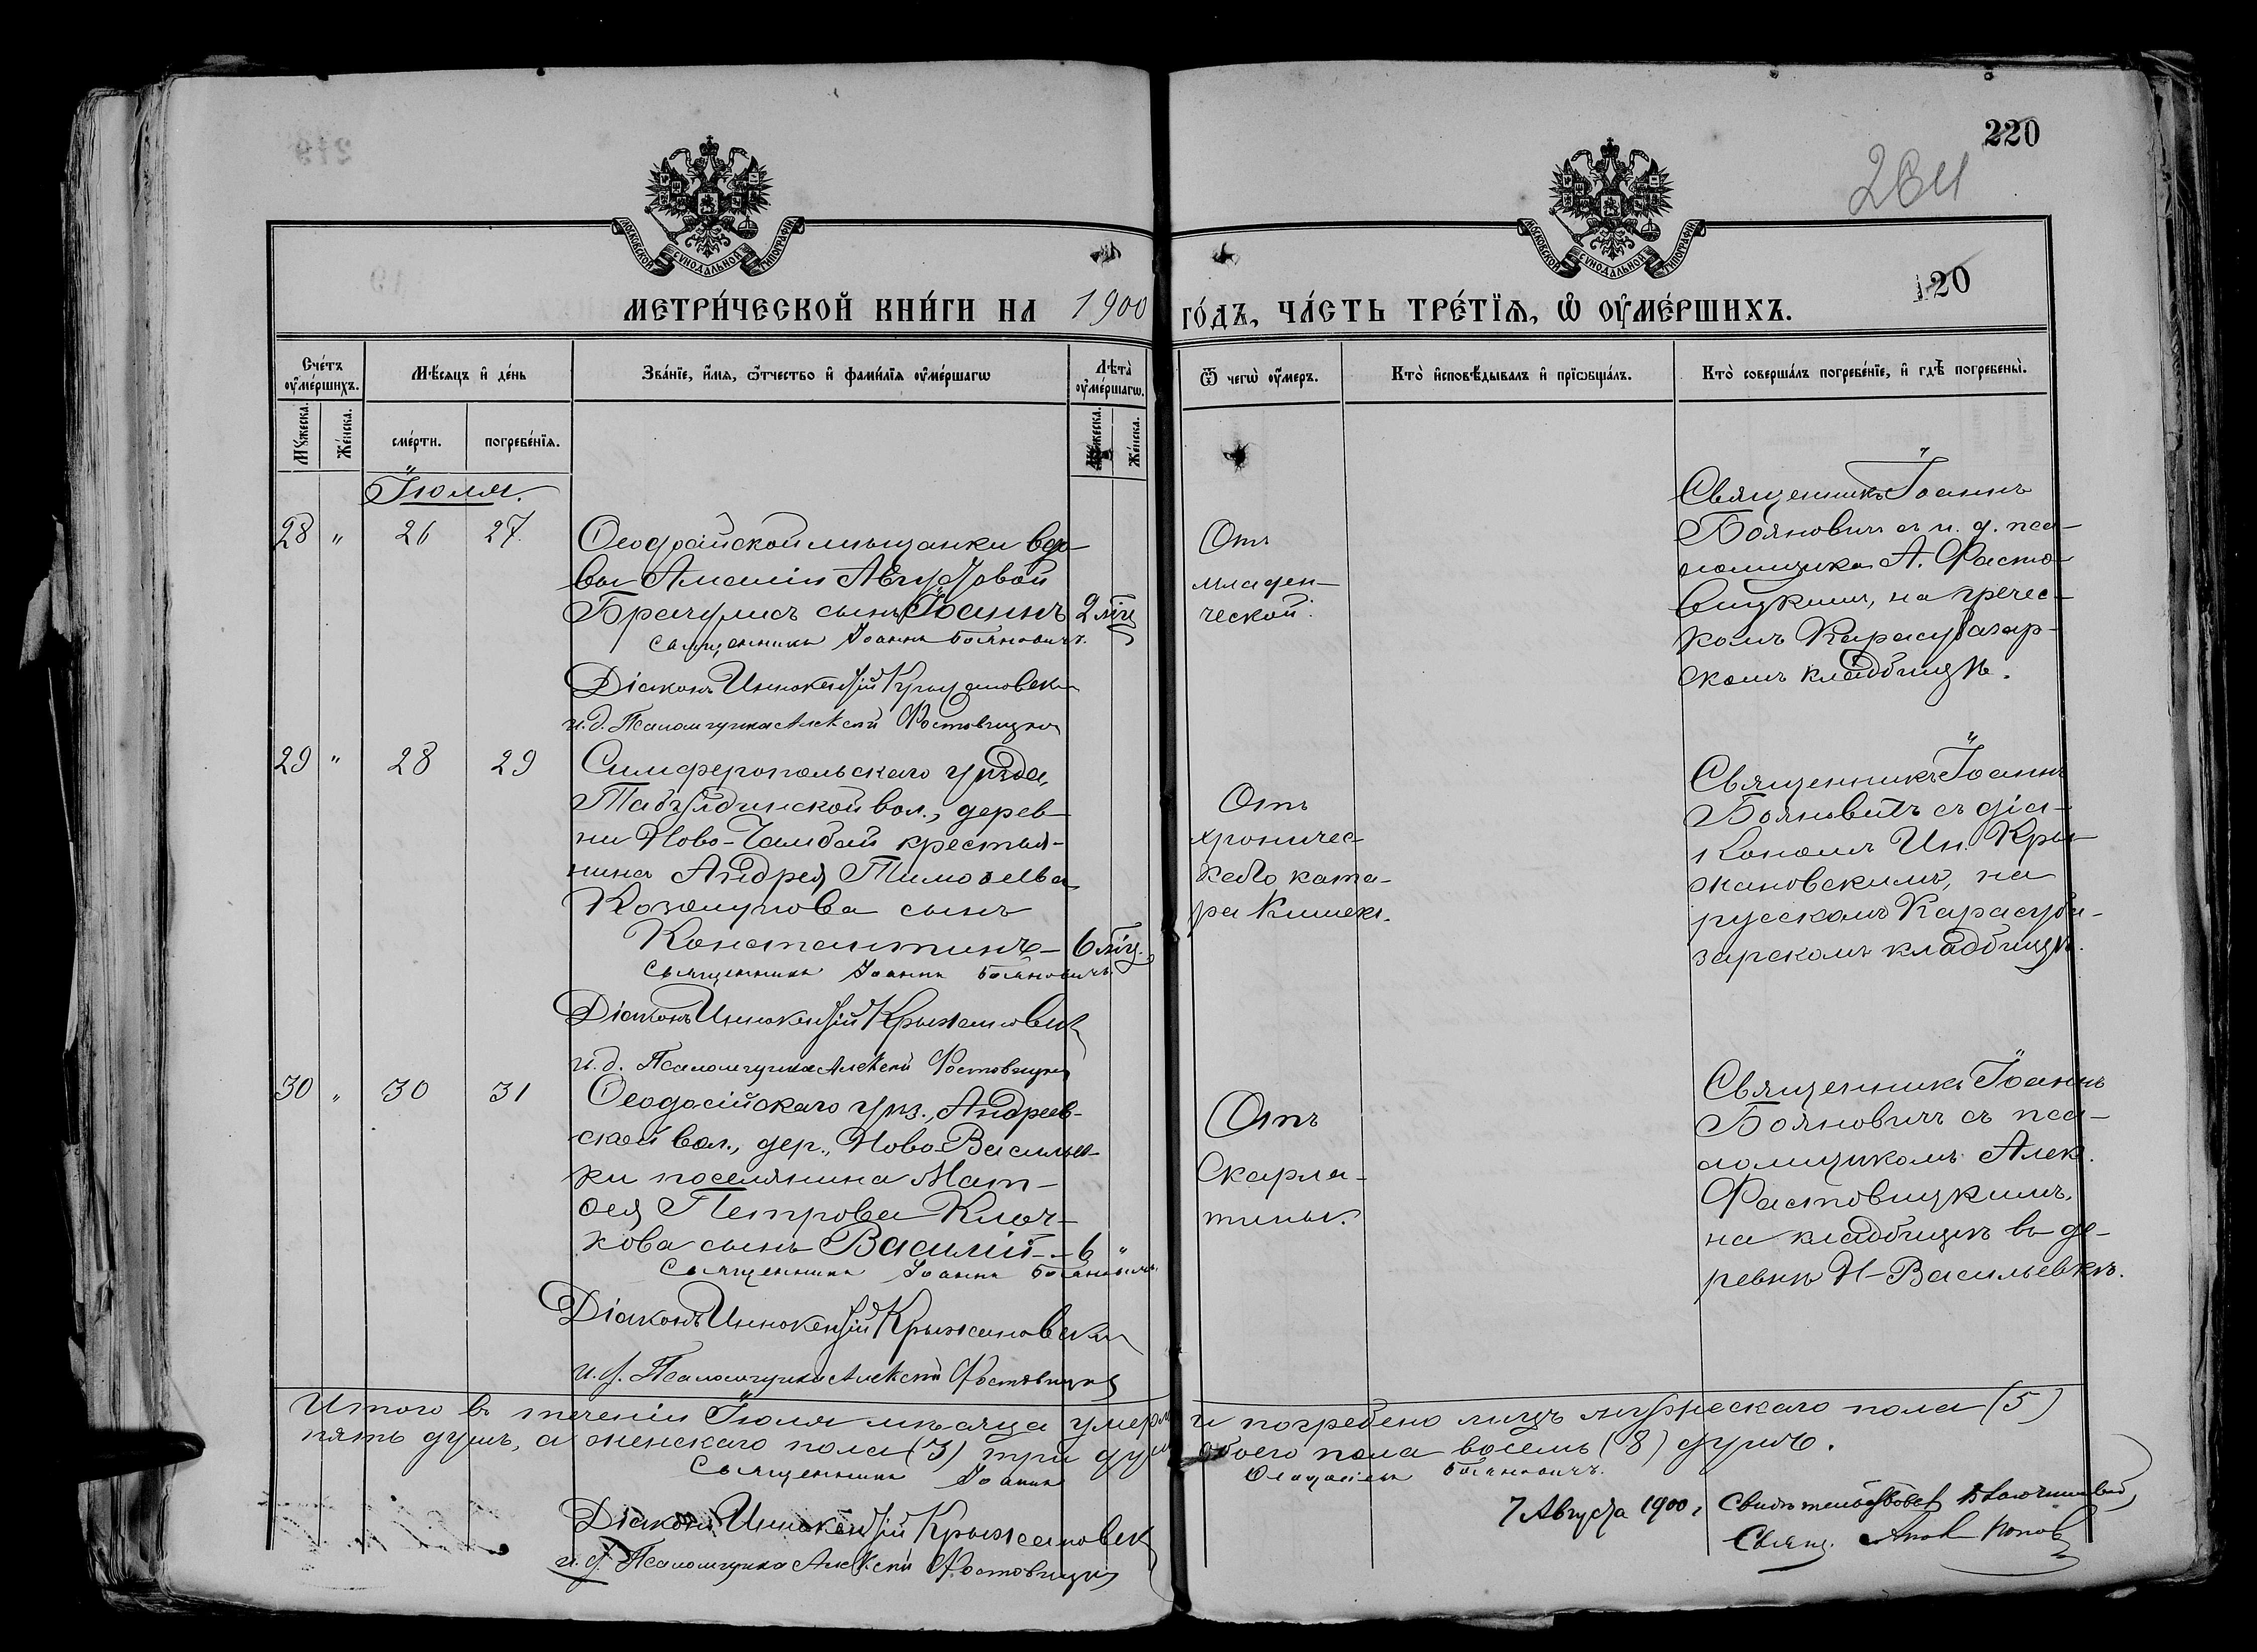 220
264
МОСКОВСКОЙ СУНОДАЛЬНОЙ ТИПОГРАФІИ
МОСКОВСКОЙ СУНОДАЛЬНОЙ ТИПОГРАФІИ
120
МЕТРИ́ЧЕСКОЙ КНИ́ГИ НА 1900 ГО́ДЪ, ЧА́СТЬ ТРЕ́ТЇѦ, Ѡ҆ ОУ҆МЕ́РШИХЪ.
Сче́тъ оу҆ме́ршихъ.
Мѣ́сѧцъ и҆ де́нь
Зва́нїе, и҆́мѧ, ѻ҆́тчество и҆ фами́лїѧ оу҆ме́ршагѡ
Лѣта̀ оу҆ме́ршагѡ.
Ѿ чегѡ̀ оу҆́меръ.
Кто̀ и҆сповѣ́дывалъ и҆ прїѡбща́лъ.
Кто̀ соверша́лъ погребе́нїе, и҆ гдѣ̀ погребены̀.
Мꙋ́жеска.
Же́нска.
сме́рти.
погребе́нїѧ.
Мꙋ́жеска.
Же́нска.
Іюля.
28 " 26 27
Ѳеодосійской мѣщанки вдо-
вы
сынъ Іоаннъ 2 мѣц
Священникъ Іоаннъ Бояновичъ.
Діаконъ Иннокентій Крыжановскій
и.д. Псаломщика Алексѣй Фастовицкій
Отъ
младен-
ческой.
Священникъ Іоаннъ
Бояновичъ съ и. д. пса-
ломщика А. Фасто-
вицкимъ, на гречес-
комъ Карасубазар-
скомъ кладбищѣ.
29 " 28 29
Симферопольскаго уѣзда,
Табулдинской вол., дерев-
ни Ново-Чамбай крестья-
нина Андрея Тимоѳеева
сынъ
Константинъ - 6 мѣц.
Священникъ Іоаннъ Бояновичъ.
Діаконъ Иннокентій Крыжановскій
и.д. Псаломщика Алексѣй Фастовицкій
Отъ
хроничес-
каго ката-
ра кишекъ.
Священникъ Іоаннъ
Бояновичъ съ діа-
кономъ Ин. Кры-
жановскимъ, на
русскомъ Карасуба-
зарскомъ кладбищѣ.
30 " 30 31
Ѳеодосійскаго уѣз., Андреев-
ской вол., дер., Ново-Васильев-
ки поселянина Мат-
ѳея Петрова Клоч-
кова сынъ Василій - 6 "
Священникъ Іоаннъ Бояновичъ.
Діаконъ Иннокентій Крыжановскій
и.д. Псаломщика Алексѣй Фастовицкій
Отъ
Скарла-
тины.
Священникъ Іоаннъ
Бояновичъ съ пса-
ломщикомъ Алек.
Фастовицкимъ,
на кладбищѣ въ де-
ревнѣ Н-Васильевкѣ.
Итого въ теченіи Іюля мѣсяца умерло и погребено лицъ мужескаго пола (5)
пять душъ, а женскаго пола (3) три души обоего пола восемь (8) душъ.
Священникъ Іоаннъ Бояновичъ.
Діаконъ Иннокентій Крыжановскій
и.д. Псаломщика Алексѣй Фастовицкій
7 Августа 1900 г. Свидѣтельствовалъ Благочинный
Свящ. Попов